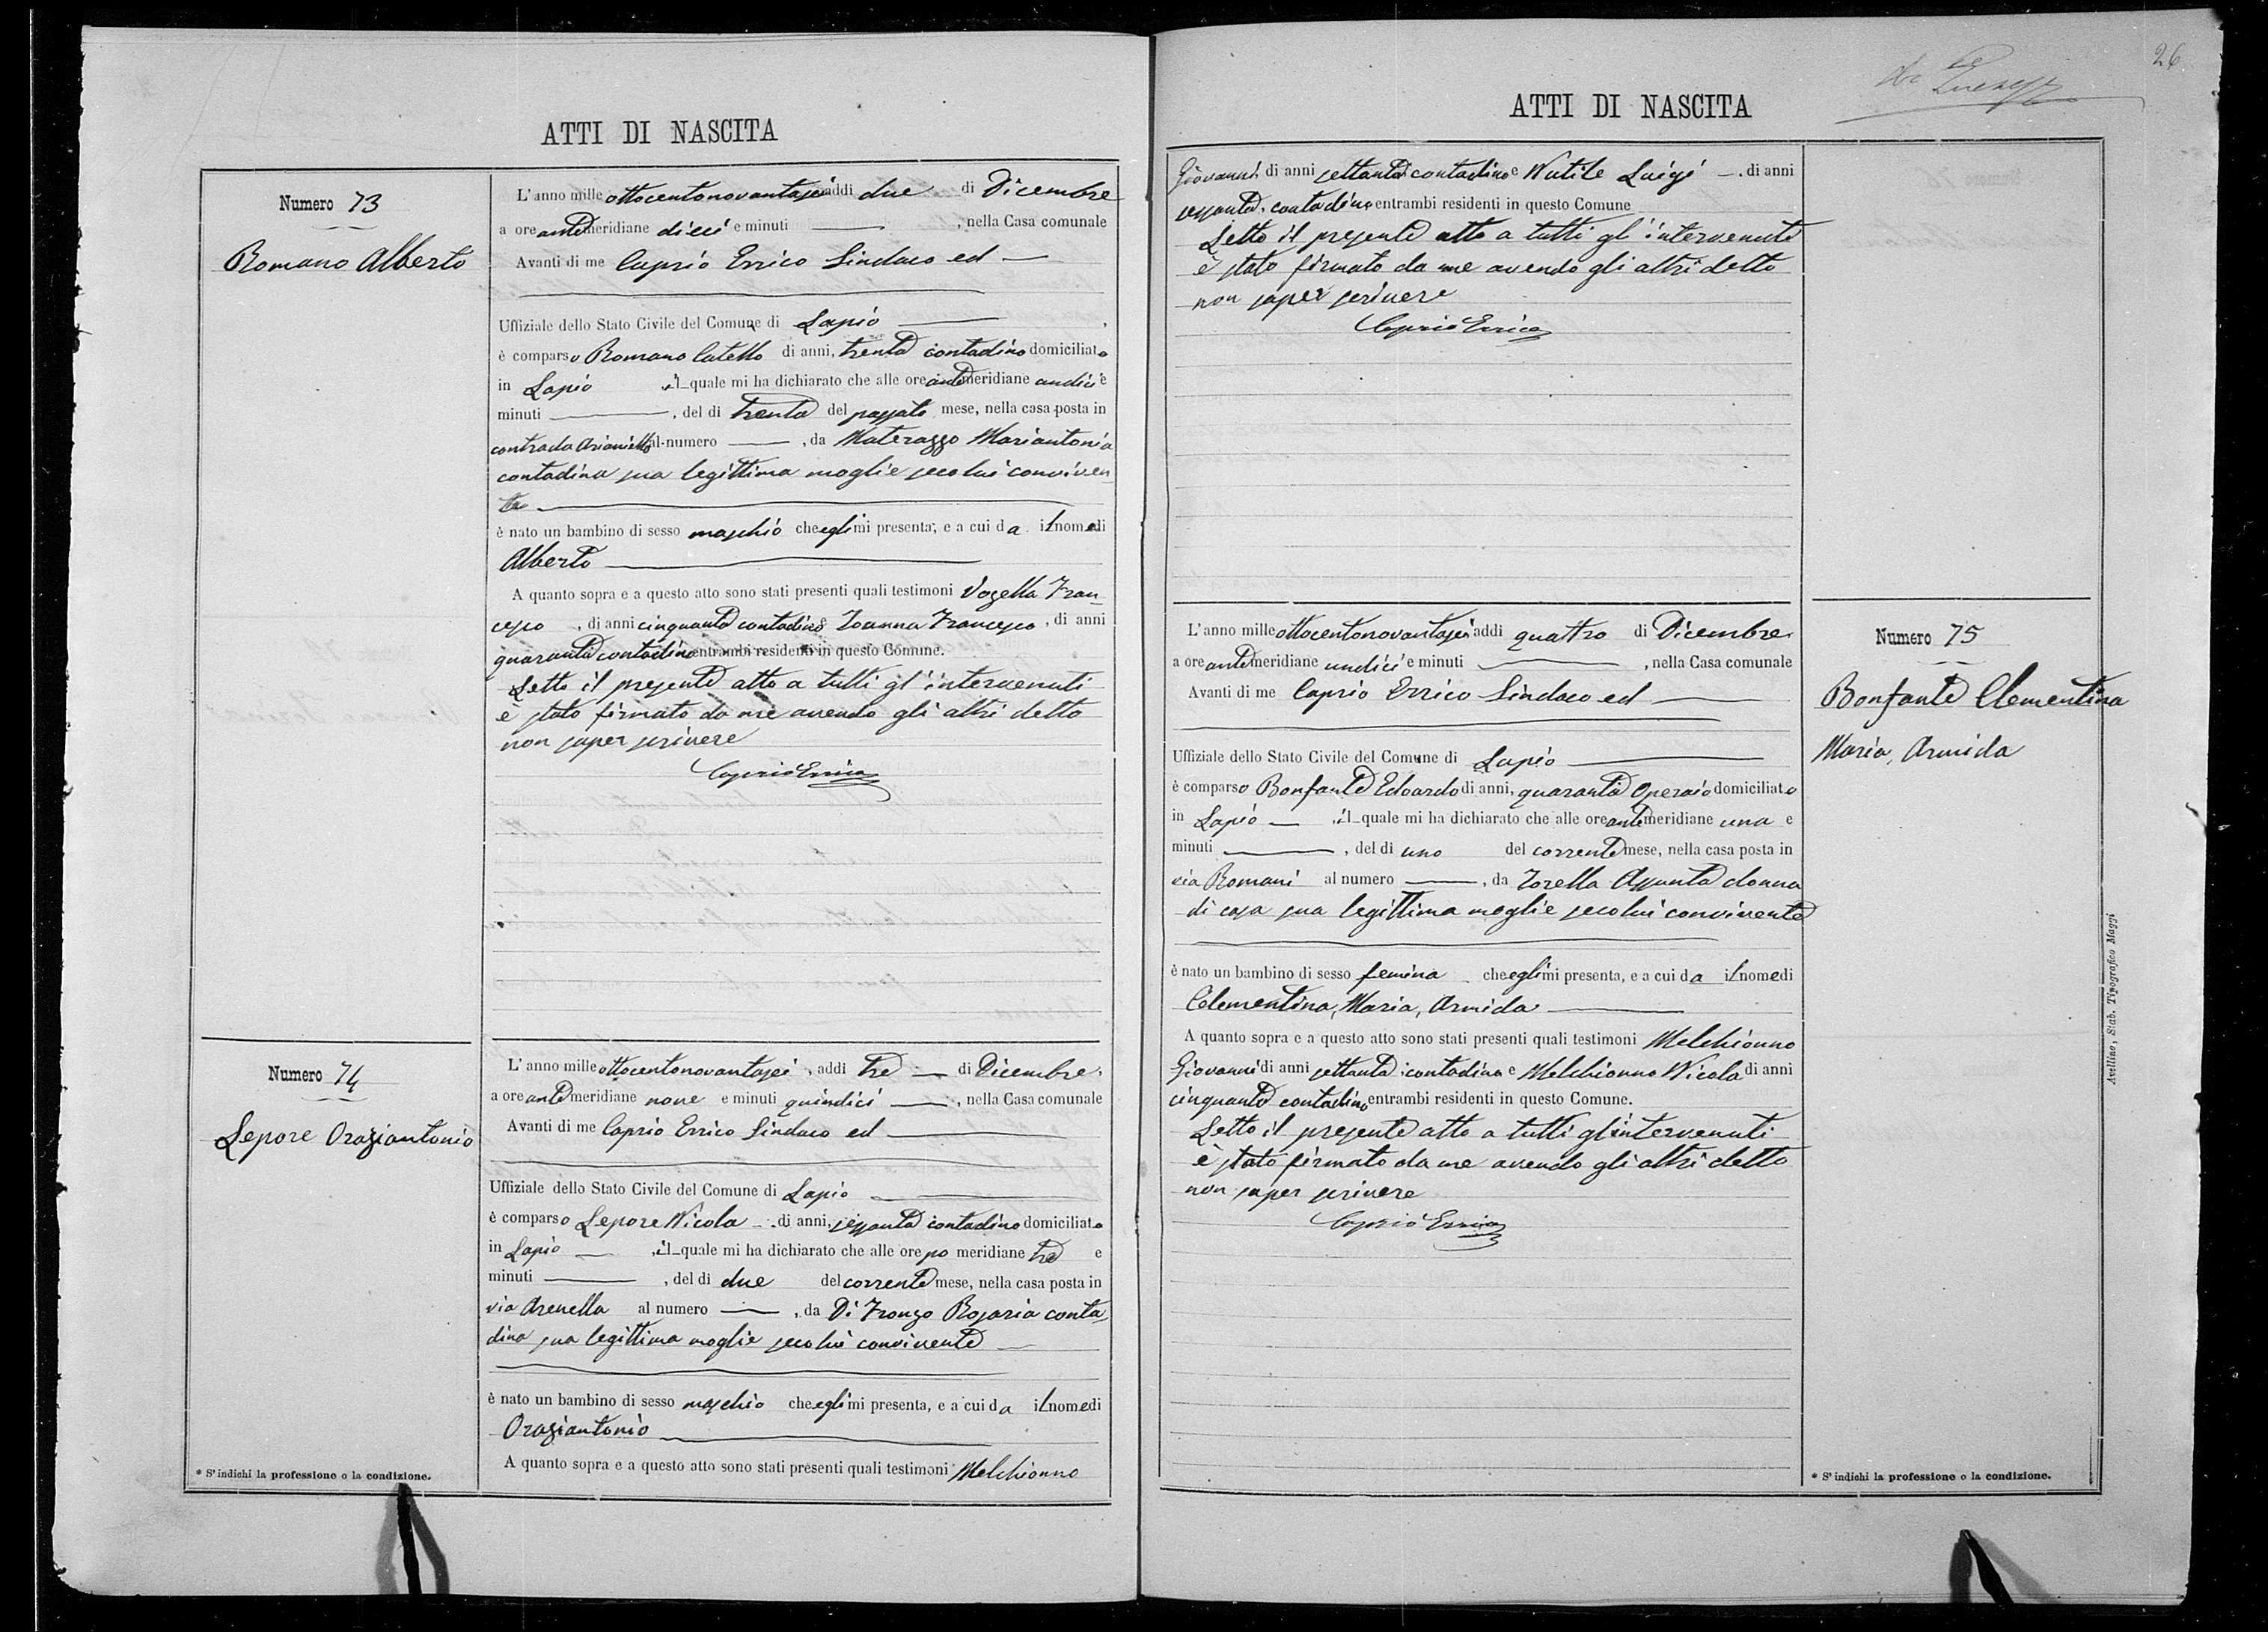 ATTI DI NASCITA
Numero 73
Romano Alberto
L'anno mille ottocentonovantasei addi due di Dicembre
a ore antemeridiane dieci e minuti , nella Casa comunale
Avanti di me Caprio Errico Sindaco ed
Uffiziale dello Stato Civile del Comune di Lapio
è comparso Romano Catello di anni, trenta contadino domiciliato
in Lapio , il quale mi ha dichiarato che alle ore antemeridiane undici e
minuti , del di trenta del passato mese, nella casa posta in
contrada Arianiello al numero , da Materazzo Mariantonia
contadina sua legittima moglie seco lui conviven
te
è nato un bambino di sesso maschio che egli mi presenta, e a cui da il nome di
Alberto
A quanto sopra e a questo atto sono stati presenti quali testimoni Vozella Fran-
cesco , di anni cinquanta contadino e Ioanna Francesco, di anni
quaranta contadino entrambi residenti in questo Comune.
Letto il presente atto a tutti gl'intervenuti
è stato firmato da me avendo gli altri detto
non saper scrivere
Caprio Errico
Numero 74
Lepore Oraziantonio
L'anno mille ottocentonovantasei, addi tre di Dicembre,
a ore antemeridiane nove e minuti quindici , nella Casa comunale
Avanti di me Caprio Errico Sindaco ed
Uffiziale dello Stato Civile del Comune di Lapio
è comparso Lepore Nicola di anni, sessanta contadino domiciliato
in Lapio , il quale mi ha dichiarato che alle ore po meridiane tre e
minuti , del di due del corrente mese, nella casa posta in
via Arenella al numero , da Di Fronzo Rosaria conta
dina sua legittima moglie seco lui convivente
è nato un bambino di sesso maschio che egli mi presenta, e a cui da il nome di
Oraziantonio
A quanto sopra e a questo atto sono stati presenti quali testimoni Melchionno
* S'indichi la professione o la condizione.
26
ATTI DI NASCITA
Giovanni di anni settanta contadino e Nutile Luigi . di anni
sessanta, contadino entrambi residenti in questo Comune
Letto il presente atto a tutti gl'intervenuti
è stato firmato da me avendo gli altri detto
non saper scrivere
Caprio Errico
Numero 75
Bonfante Clementina
Maria, Armida
L'anno mille ottocentonovantasei addi quattro di Dicembre
a ore antemeridiane undici e minuti , nella Casa comunale
Avanti di me Caprio Errico Sindaco ed
Uffiziale dello Stato Civile del Comune di Lapio
è comparso Bonfante Edoardo di anni, quaranta Operaio domiciliato
in Lapio , il quale mi ha dichiarato che alle ore antemeridiane una e
minuti , del di uno del corrente mese, nella casa posta in
via Romani al numero , da Zorella Assunta donna
di casa sua legittima moglie seco lui convivente
è nato un bambino di sesso femina che egli mi presenta, e a cui da il nome di
Clementina, Maria, Armida
A quanto sopra e a questo atto sono stati presenti quali testimoni Melchionno
Giovanni di anni settanta contadino e Melchionno Nicola di anni
cinquanta contadino entrambi residenti in questo Comune.
Letto il presente atto a tutti gl'intervenuti
è stato firmato da me avendo gli altri detto
non saper scrivere
Caprio Errico
* S'indichi la professione o la condizione.
Avellino, Stab. Tipografico Maggi